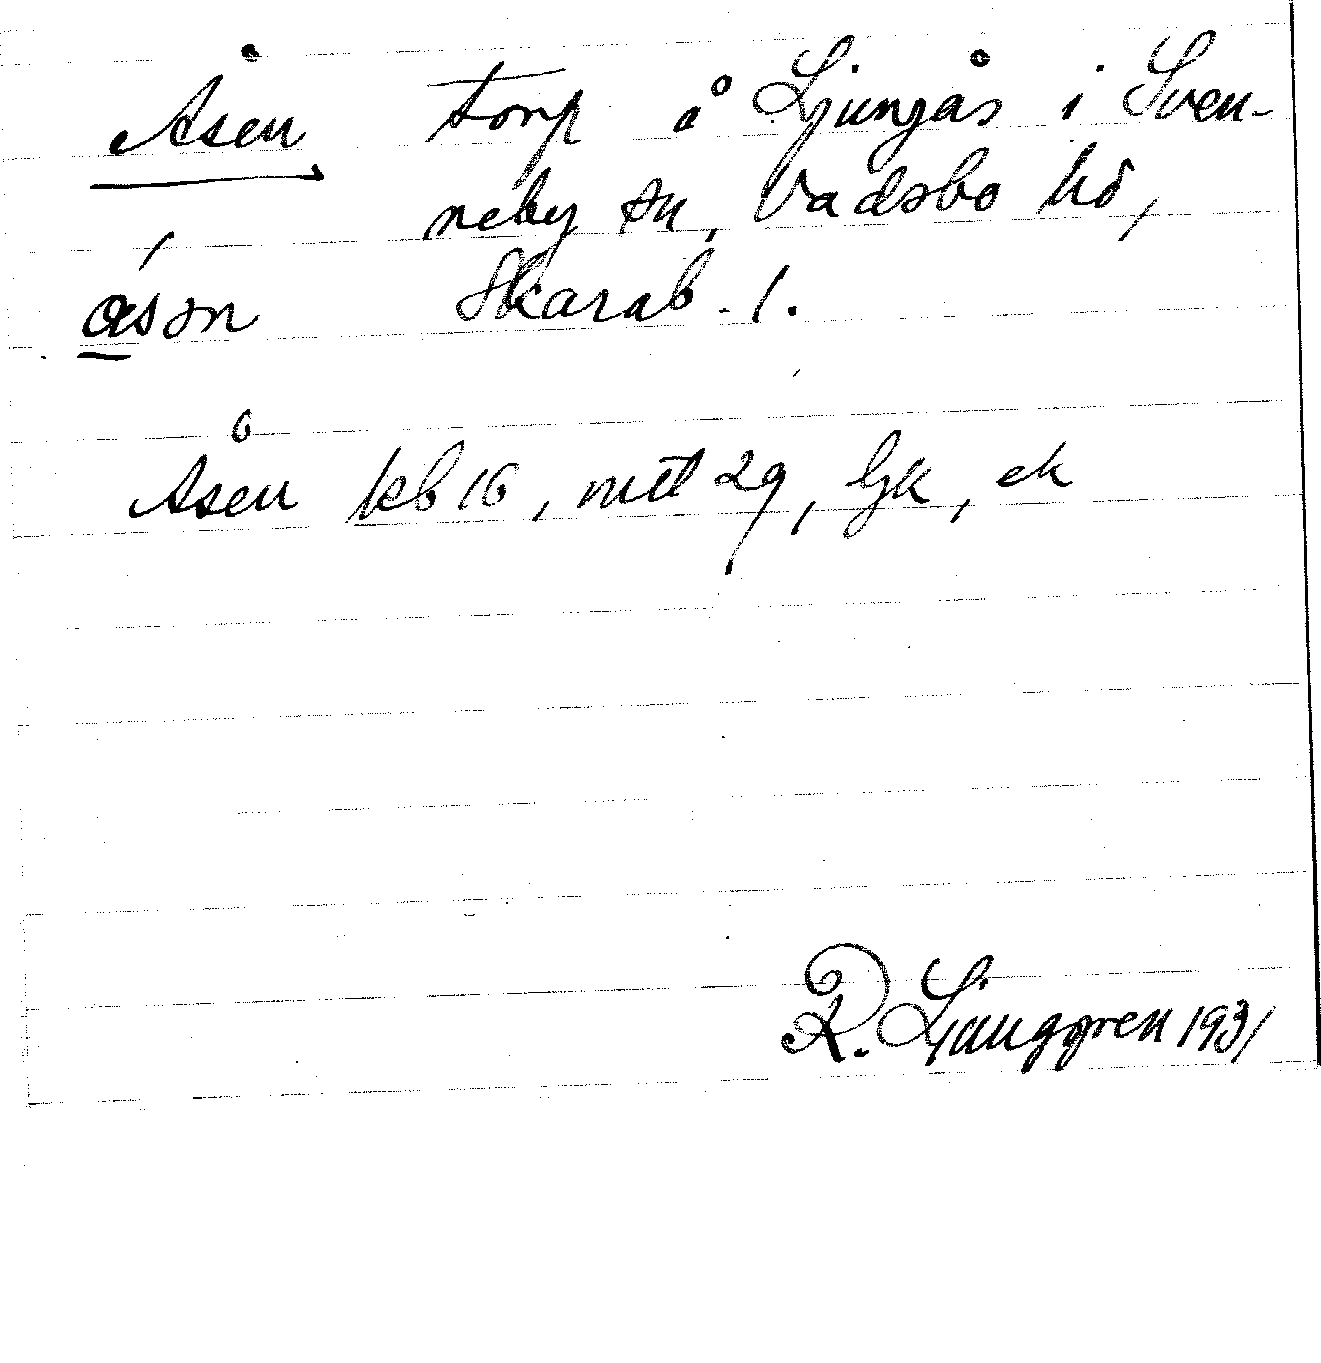 Åsen torp å Ljungås i Sven-
neby sn, Vadsbo hd,
åsən Skarab. l.
Åsen kb 16, mtl 29, Gk, ek
R. Ljunggren 1931